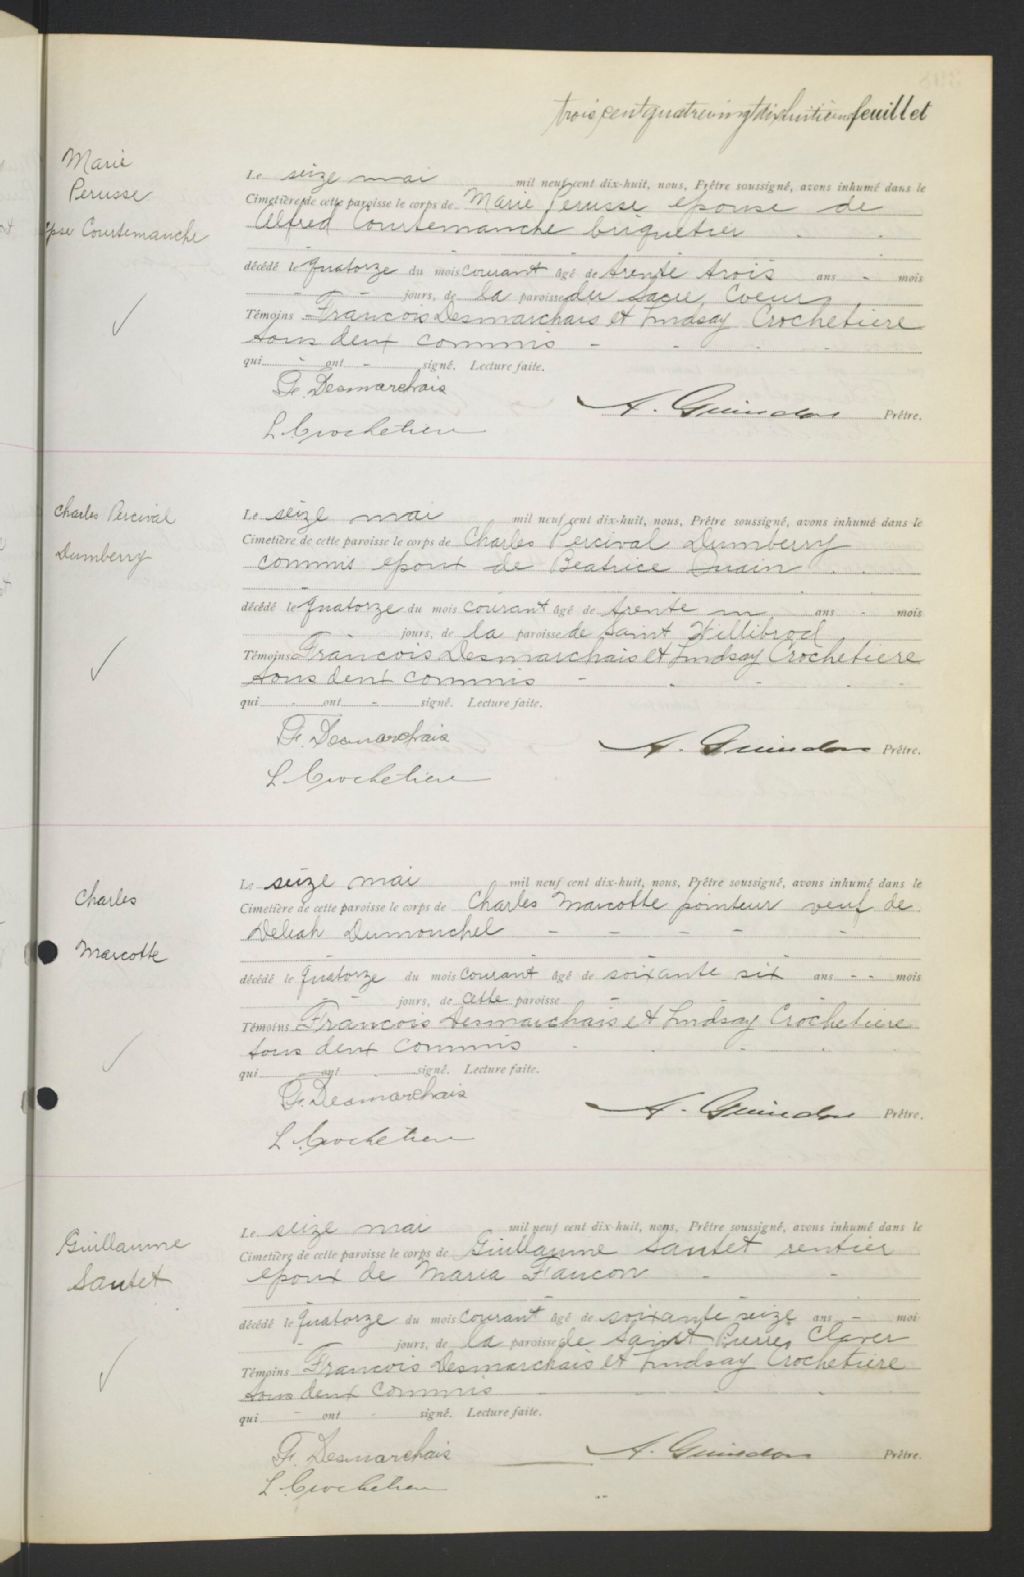 trois cent quatrevingt dixhuitième feuillet
Marie
Perusse
epse Courtemanche
Le seize mai mil neuf cent dix-huit, nous, Prêtre soussigné, avons inhumé dans le
Cimetière de cette paroisse le corps de Marie Perusse epouse de
Alfred Courtemanche briquetier
décédé le quatorze du mois courant âgé de trente trois ans - mois
- - jours, de la paroisse du Sacre Coeur
Témoins Francois Desmarchais et Lindsay Crochetiere
tous deux commis - - - -
qui - ont - signé. Lecture faite.
F. Desmarchais
A. Guindon Prêtre.
L. Crochetiere
Charles Percival
Dumberry
Le seize mai mil neuf cent dix-huit, nous, Prêtre soussigné, avons inhumé dans le
Cimetière de cette paroisse le corps de Charles Percival Dumberry
commis epoux de Beatrice Quain
décédé le quatorze du mois courant âgé de trente un ans - mois
- jours, de la paroisse de Saint Willibrod
Témoins Francois Desmarchais et Lindsay Crochetiere
tous deux commis - - - -
qui - ont - signé. Lecture faite.
F. Desmarchais
A. Guindon Prêtre.
L. Crochetiere
Charles
Marcotte
Le seize mai mil neuf cent dix-huit, nous, Prêtre soussigné, avons inhumé dans le
Cimetière de cette paroisse le corps de Charles Marcotte pointeur veuf de
Deleah Dumouchel - - - - -
décédé le quatorze du mois courant âgé de soixante six ans - - mois
- - jours, de cette paroisse -
Témoins Francois Desmarchais et Lindsay Crochetiere
tous deux commis - - - -
qui - ont - signé. Lecture faite.
F. Desmarchais
A. Guindon Prêtre.
L. Crochetiere
Guillaume
Sautet
Le seize mai mil neuf cent dix-huit, nous, Prêtre soussigné, avons inhumé dans le
Cimetière de cette paroisse le corps de Guillaume Sautet rentier
epoux de Maria Faucon - -
décédé le quatorze du mois courant âgé de soixante seize ans - moi
- jours, de la paroisse de Saint Pierre Claver
Témoins Francois Desmarchais et Lindsay Crochetiere
tous deux commis - - - -
qui - ont - signé. Lecture faite.
F. Desmarchais
A. Guindon Prêtre.
L. Crochetiere